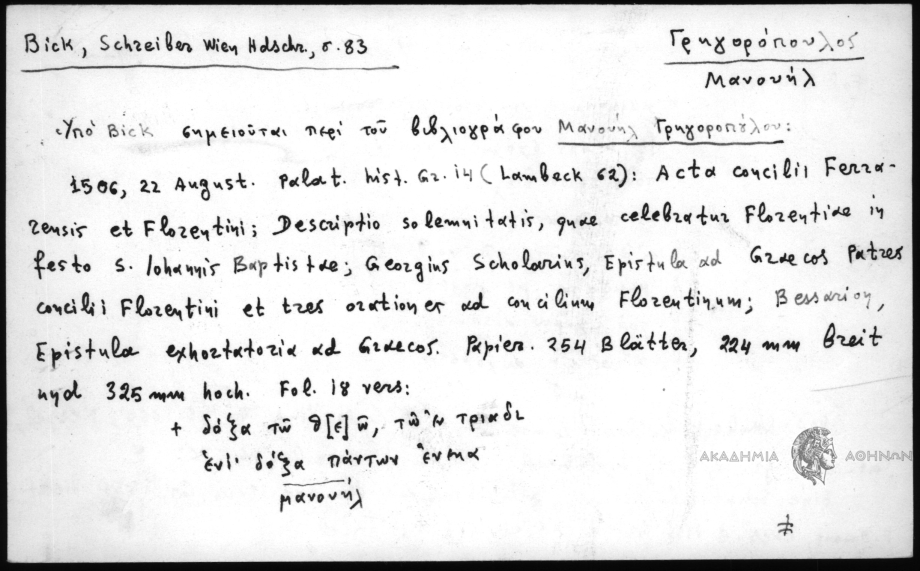 Bick, Schreiber Wien Hdschr., σ. 83
Γρηγορόπουλος
Μανουήλ
Ὑπὸ Bick σημειοῦται περὶ τοῦ βιβλιογράφου Μανουὴλ Γρηγοροπούλου:
1506, 22 August. Palat. hist. Gr. 14 (Lambeck 62): Acta concilii Ferra-
rensis et Florentini; Descriptio solemnitatis, quae celebratur Florentiae in
festo S. Iohannis Baptistae; Georgius Scholarius, Epistula ad Graecos Patres
concilii Florentini et tres orationes ad concilium Florentinum; Bessarion,
Epistula exhortatoria ad Graecos. Papier. 254 Blätter, 224 mm breit
und 325 mm hoch. Fol. 18 vers:
+ δόξα τῶ θ[ε]ῶ, τῶ ἐν τριαδι
ἑνί· δόξα πάντων ἕνεκα
μανουήλ
ΑΚΑΔΗΜΙΑ ΑΘΗΝΩΝ